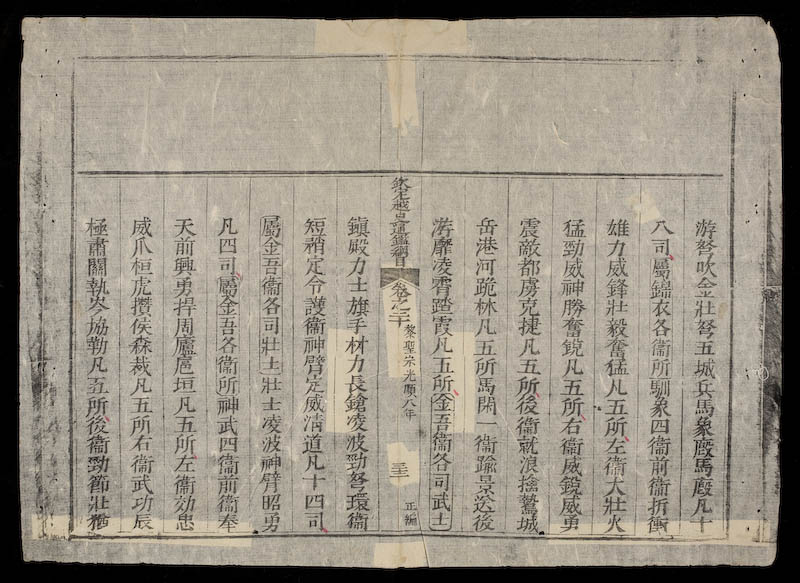 游弩吹金壯弩五城兵馬象廄馬廄凡十
八司屬錦衣各衛所馴象四衛前衛折衝
雄力威鋒壯毅奮猛凡五所左衛大壯火
猛勁威神勝奮鏡凡五所右衛威鏡威勇
震敵都虜克捷凡五所後衛就浪擒鷙城
岳港河跪林凡五所馬閑一衛踰景送後
游靡凌霄踏霞凡五所金吾衛各司武士
欽定越史通鑑綱目 卷之二十 黎聖宗光順八年 三三 正編
鎮殿力士旗手材力長鎗凌波勁弩環衛
短矟定令護衛神臂定威清道凡十四司
屬金吾衛各司壯士壯士凌波神臂昭勇
凡四司屬金吾各衛所神武四衛前衛奉
天前興勇捍周廬扈垣凡五所左衛効忠
威爪桓虎攢侯森裁凡五所右衛武功辰
極肅關執岑協勒凡五所後衛勁節壯猶